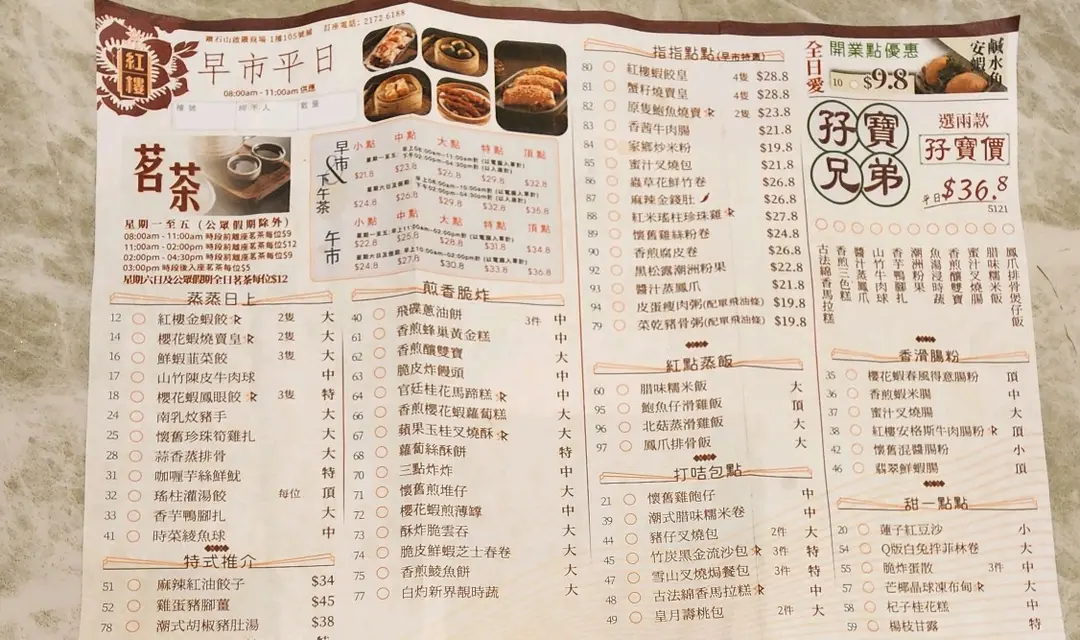 鑽石山啟鑽商場 1樓105號舖 訂座電話: 2172 6188
紅樓
早市平日
08:00am - 11:00am 供應
檯號
經手人
數量
茗茶
星期一至五 (公眾假期除外)
08:00am - 11:00am 時段前離座茗茶每位$9
11:00am - 02:00pm 時段前離座茗茶每位$12
02:00pm - 04:30pm 時段前離座茗茶每位$9
03:00pm 時段後入座茗茶每位$5
星期六日及公眾假期全日茗茶每位$12
早市&下午茶
小點 中點 大點 特點 頂點
$21.8 $23.8 $26.8 $29.8 $32.8
$24.8 $26.8 $29.8 $32.8 $36.8
午市
小點 中點 大點 特點 頂點
$22.8 $25.8 $28.8 $31.8 $34.8
$24.8 $27.8 $30.8 $33.8 $36.8
蒸蒸日上
12 紅樓金蝦餃 2隻 大
14 櫻花蝦燒賣皇 2隻 大
16 鮮蝦韮菜餃 3隻 大
17 山竹陳皮牛肉球 中
18 櫻花蝦鳳眼餃 3隻 特
24 南乳炆豬手 大
25 懷舊珍珠筍雞扎 大
28 蒜香蒸排骨 大
31 咖喱芋絲鮮魷 特
32 瑤柱灌湯餃 每位 頂
33 香芋鴨腳扎 大
41 時菜綾魚球 中
特式推介
51 麻辣紅油餃子 $34
52 雞蛋豬腳薑 $45
78 潮式胡椒豬肚湯 $38
煎香脆炸
40 飛碟蔥油餅 3件 中
61 香煎蜂巢黃金糕 中
62 香煎釀雙寶 大
63 脆皮炸饅頭 中
64 官廷桂花馬蹄糕 中
66 香煎櫻花蝦蘿蔔糕 大
67 蘋果玉桂叉燒酥 大
68 蘿蔔絲酥餅 特
70 三點炸炸 中
71 懷舊煎堆仔 大
72 櫻花蝦煎薄罉 中
73 酥炸脆雲吞 大
74 脆皮鮮蝦芝士春卷 大
75 香煎鯪魚餅 大
77 白灼新界靚時蔬 大
指指點點(早市特惠)
80 紅樓蝦餃皇 4隻 $28.8
81 蟹籽燒賣皇 4隻 $28.8
82 原隻鮑魚燒賣 2隻 $23.8
83 香茜牛肉腸 $21.8
84 家鄉炒米粉 $19.8
85 蜜汁叉燒包 $21.8
86 蟲草花鮮竹卷 $26.8
87 麻辣金錢肚 $26.8
88 紅米瑤柱珍珠雞 $27.8
89 懷舊雞絲粉卷 $24.8
90 香煎腐皮卷 $26.8
92 黑松露潮洲粉果 $22.8
93 醬汁蒸鳳爪 $21.8
94 皮蛋瘦肉粥(配單飛油條) $19.8
79 菜乾豬骨粥(配單飛油條) $19.8
紅點蒸飯
60 腊味糯米飯 大
95 鮑魚仔滑雞飯 頂
96 北菇蒸滑雞飯 大
97 鳳爪排骨飯 大
打咭包點
21 懷舊雞飽仔 中
39 潮式腊味糯米卷 中
44 豬仔叉燒包 2件 大
45 竹炭黑金流沙包 3件 特
47 雪山叉燒焗餐包 3件 特
48 古法綿香馬拉糕 大
49 皇月壽桃包 2件 大
全日愛
開業點優惠
10 $9.8
鹹水角
孖寶兄弟
選兩款
孖寶價
平日$36.8
5121
古法綿香馬拉糕
香煎三色糕
醬汁蒸鳳爪
山竹牛肉球
香芋鴨腳扎
潮洲粉果
魚湯浸時蔬
香煎釀雙寶
蜜汁叉燒腸
腊味糯米飯
鳳爪排骨煲仔飯
香滑腸粉
35 櫻花蝦春風得意腸粉 頂
36 香煎蝦米腸 中
37 蜜汁叉燒腸 大
38 紅樓安格斯牛肉腸粉 頂
42 懷舊混醬腸粉 小
46 翡翠鮮蝦腸 頂
甜一點點
20 蓮子紅豆沙 小
54 Q版白兔拌菲林卷 大
55 脆炸蛋散 3件 中
57 芒椰晶球凍布甸 大
58 杞子桂花糕 中
59 楊枝甘露 特